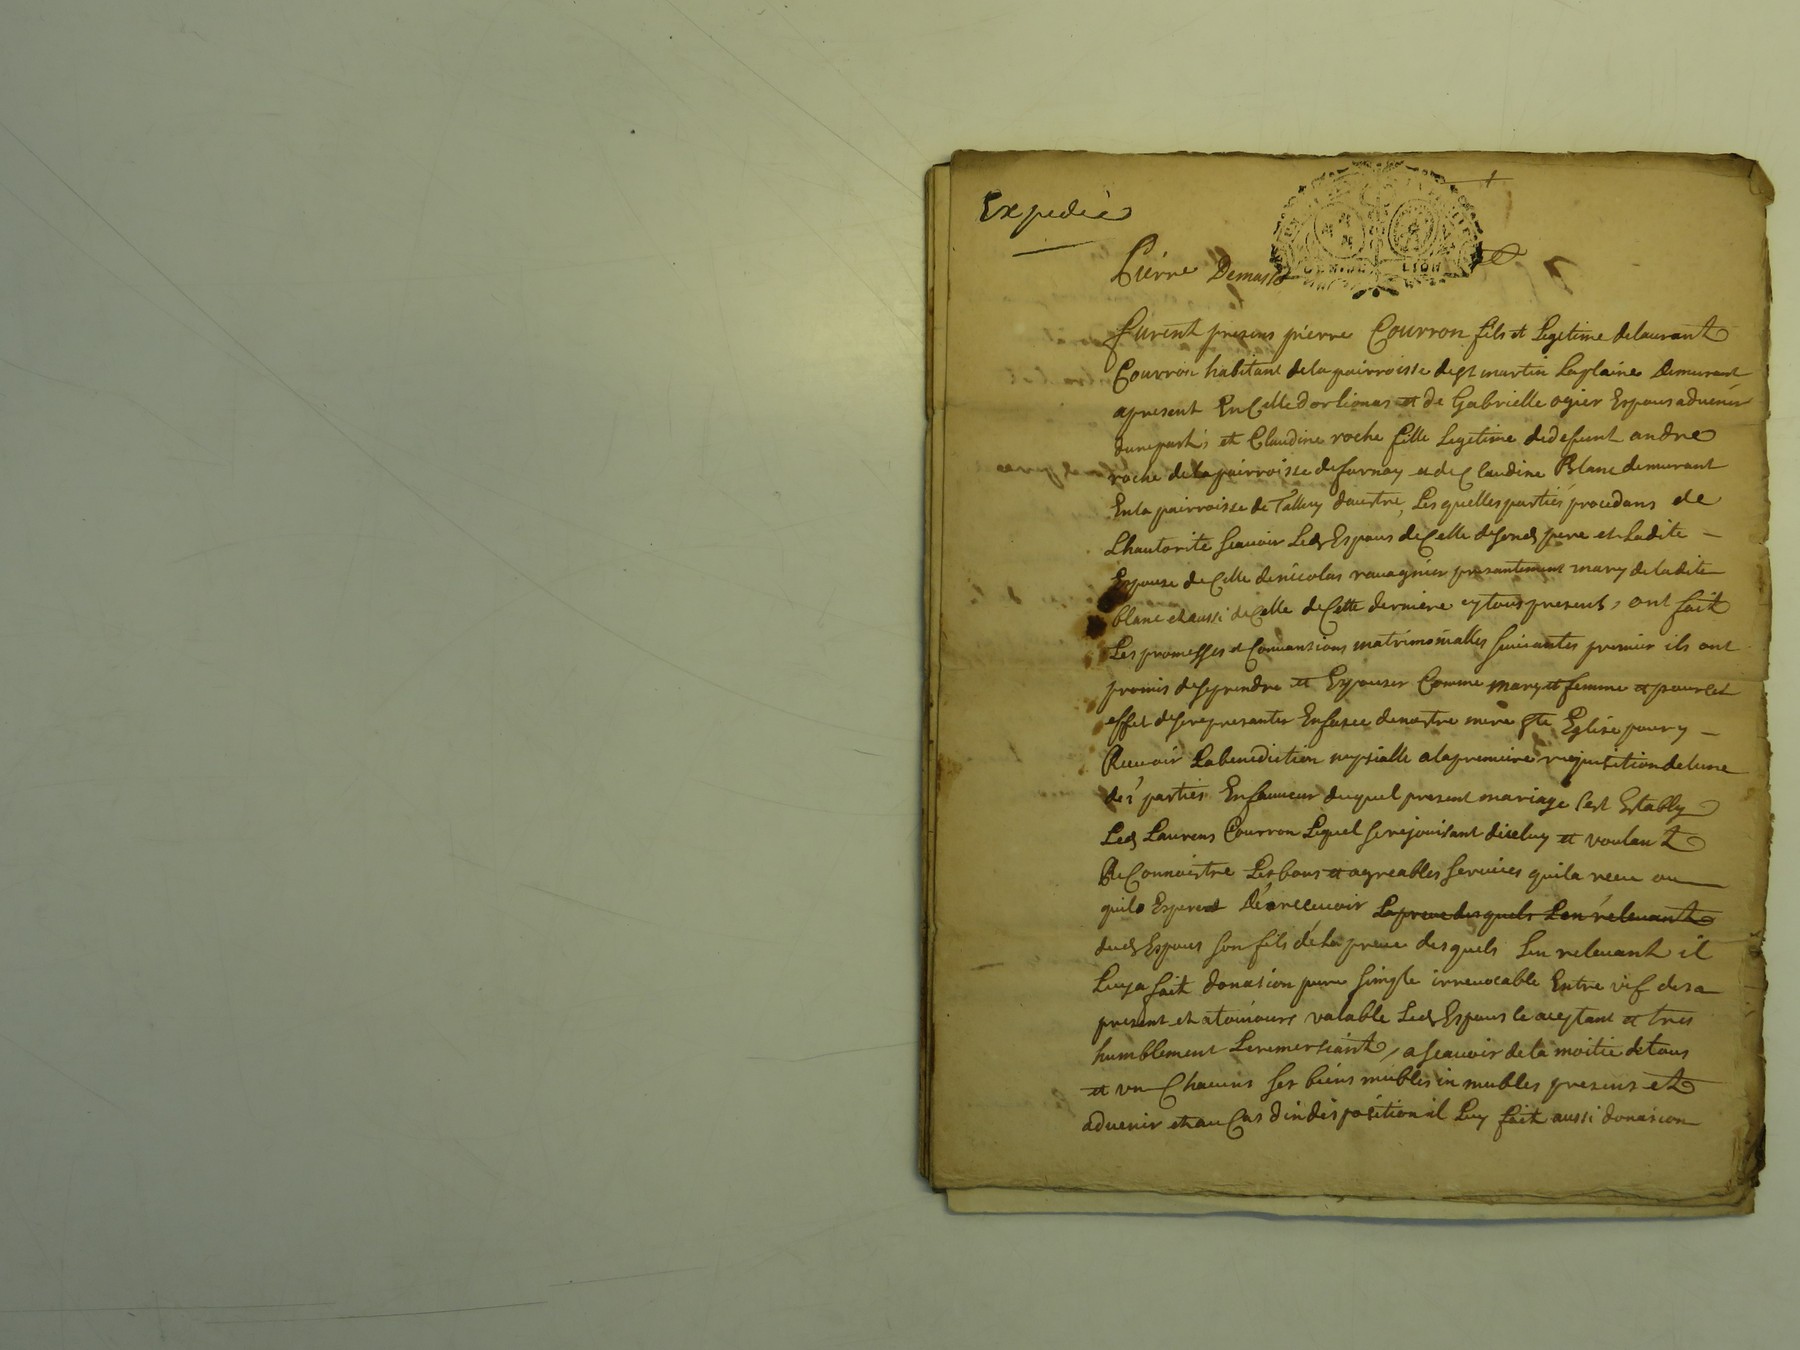 Expediée
GEN DE LION
Pierre Demasso
Furent presens pierre Courron fils et Legetime delaurant
Courron habitant dela pairroisse de st martin Laplaine Demurant
apresent En Celle dorlienas et de Gabrielle ogier Espous aduenir
dune part; et Claudine roche fille Legetime dedefunt andre
roche dela pairroisse de fornay et de Claudine Blanc demurant
En la pairroisse de Talluy dautre, Les quelles parties procedans de
Lhautorite scauoir Led Espous de Celle de son d pere et Ladite
Espouse de Celle denicolas rauagnier presantement mary deladite
blanc et aussi de Celle de Cette derniere cy tous presents, ont fait
Les promesses et Conuansions matrimonialles suiuantes premier ils ont
promis de se prendre et Espouser Comme mary et femme et pour Cet
effet de se represanter En face de nostre mere ste Eglise pour y
Receuoir La benediction nupsialle a la premiere requisition de lune
des parties En faueur duquel present mariage Cest Estably
Led Laurens Courron Lequel se rejouisant diceluy et voulant
ReConnoistre Les bons et agreables seruices quil a receu ou
quil Espere d En receuoir La preuue des quels Len releuant
dud Espous son fils de la preuue des quels Len releuant il
Luy a fait donasion pure simple irreuocable Entre vif des a
present et a toujours valable Led Espous le aceptant et tres
humblement Le remersiant, a scauoir de la moitie de tous
et vn Chacuns ses biens mubles in mubles presens et
aduenir et au Cas dindisposition il Luy fait aussi donasion